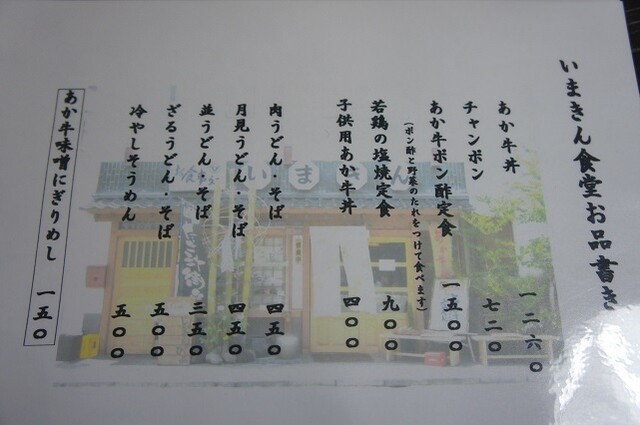 いまきん食堂お品書き
あか牛丼 一二六〇
チャンポン 七二〇
あか牛ポン酢定食 一五〇〇
(ポン酢と野菜のたれをつけて食べます)
若鶏の塩焼定食 九〇〇
子供用あか牛丼 四〇〇
肉うどん・そば 四五〇
月見うどん・そば 四五〇
並うどん・そば 三五〇
ざるうどん・そば 五〇〇
冷やしそうめん 五〇〇
あか牛味噌にぎりめし 一五〇
いまきん